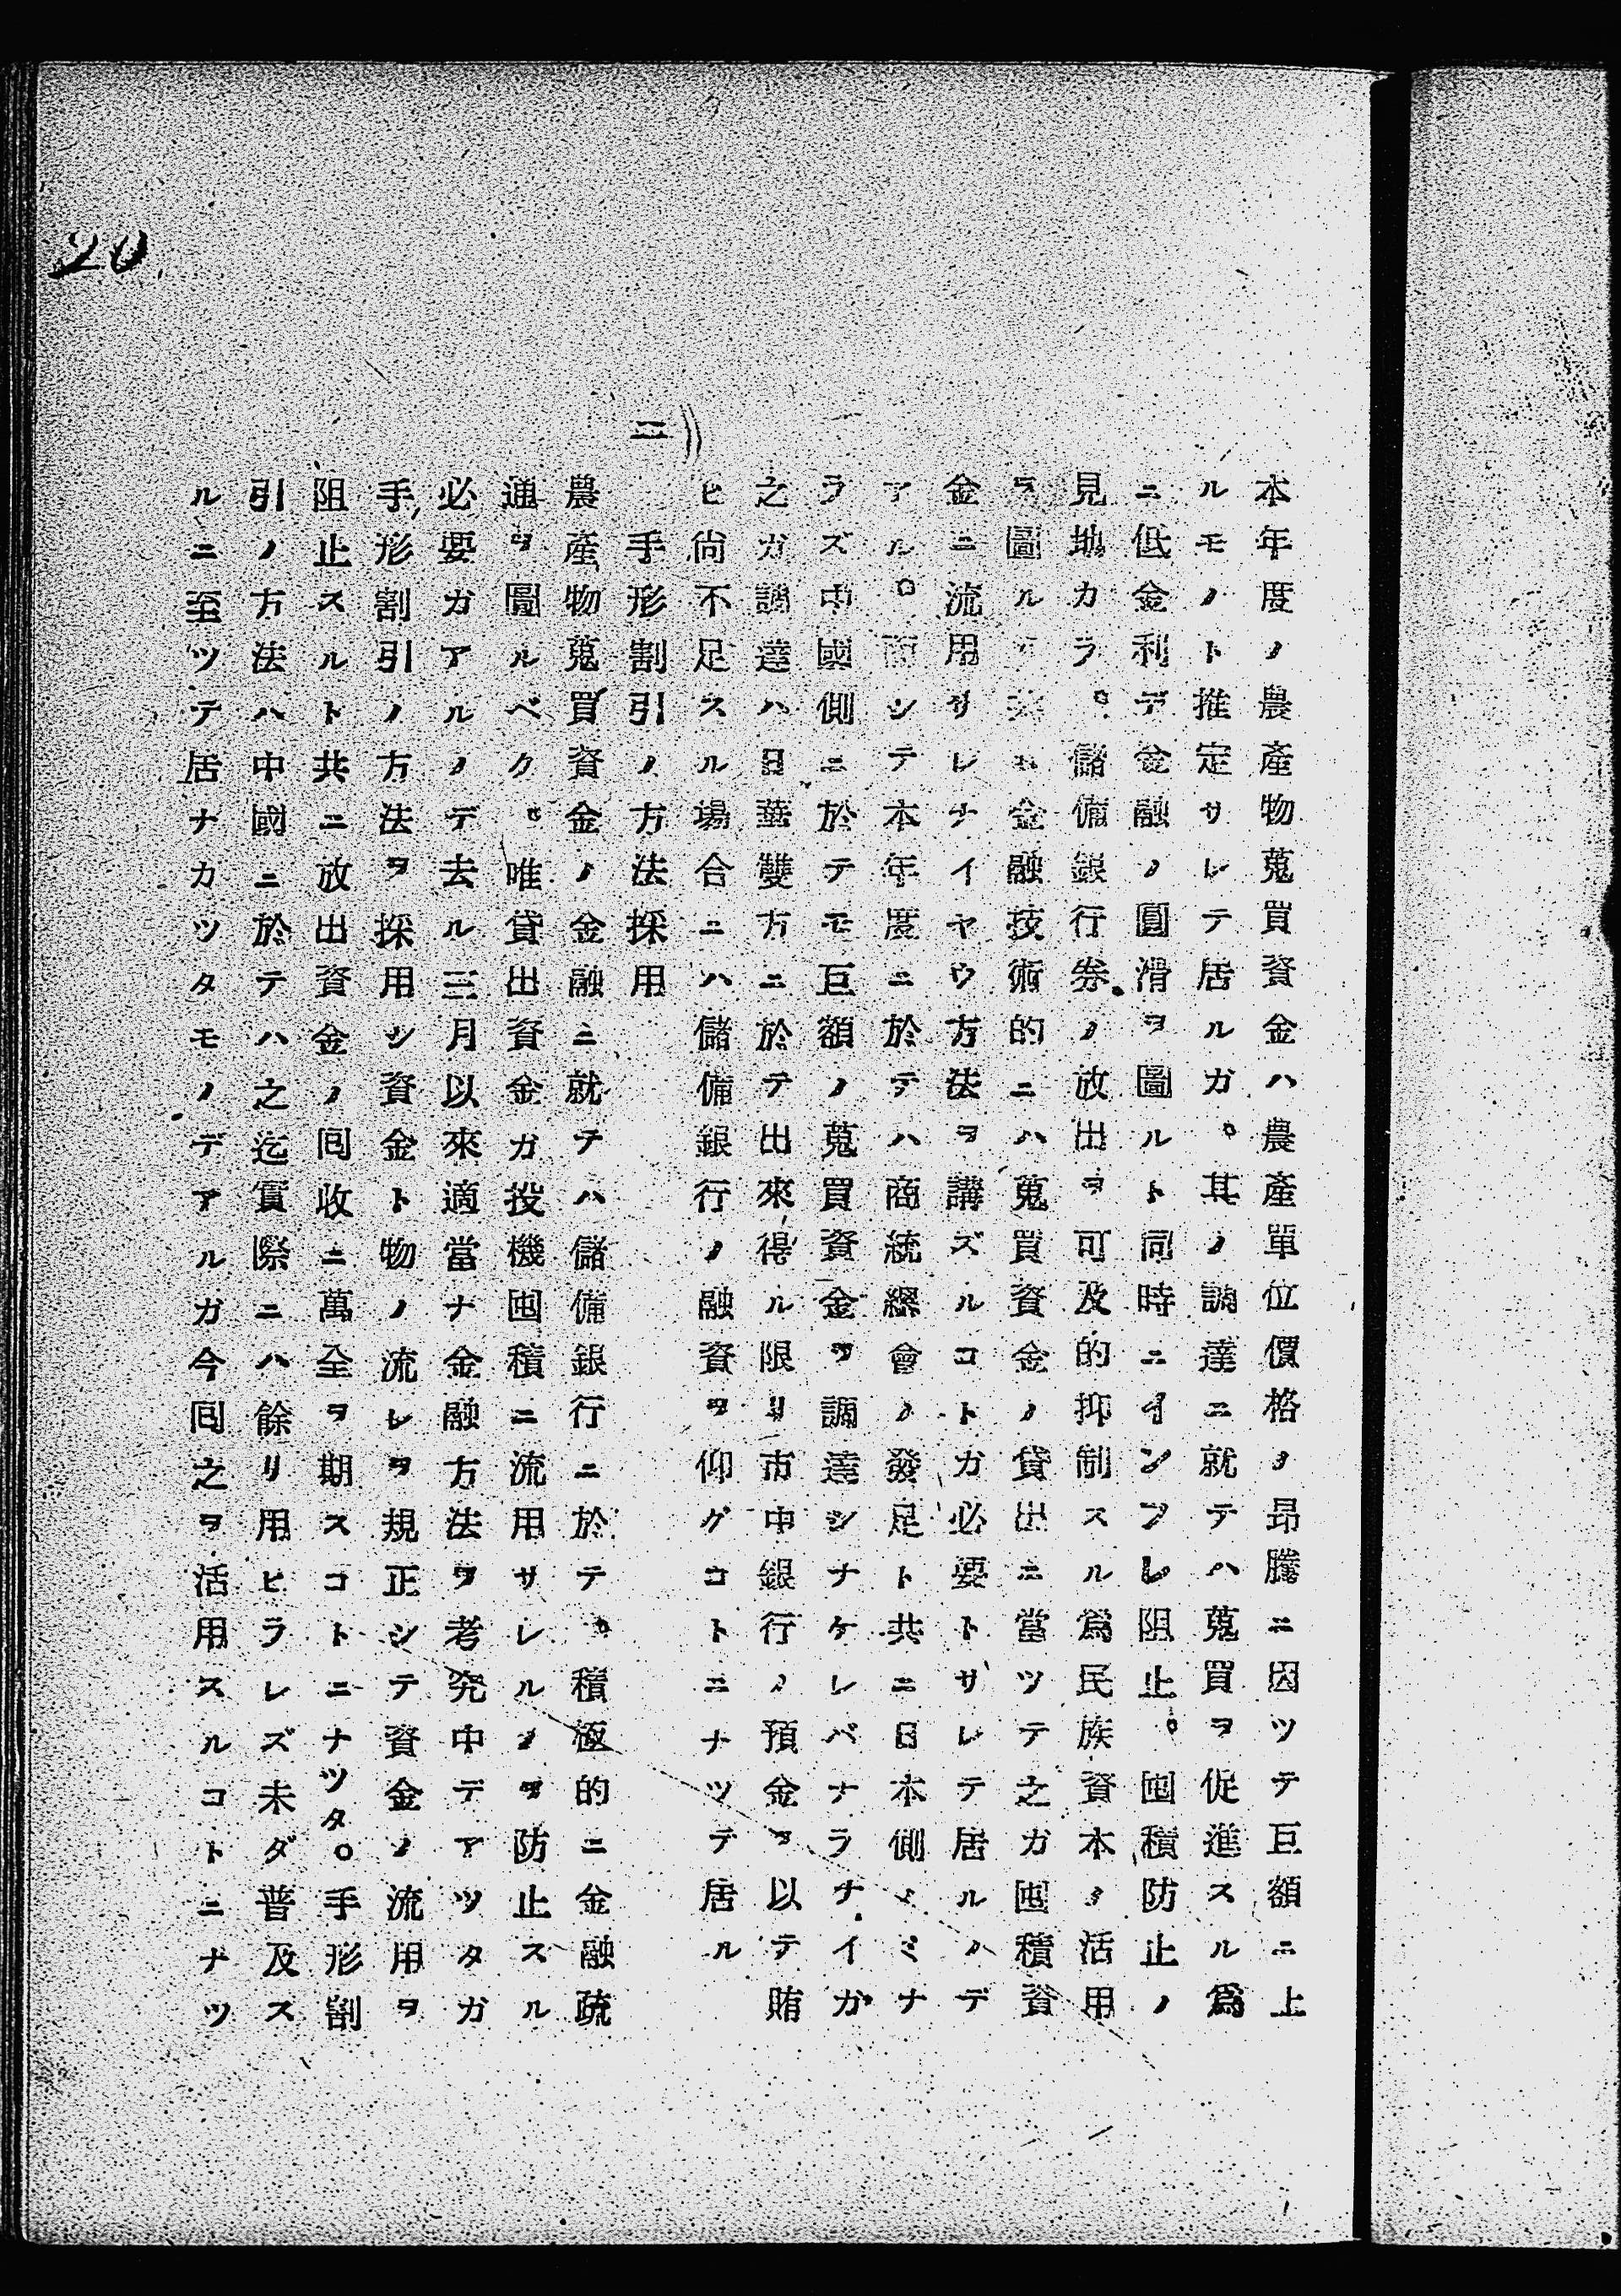 本年度ノ農產物蒐買資金ハ農產單位價格ノ昂騰ニ因ツテ巨額ニ上
ルモノト推定サレテ居ルガ。其ノ調達ニ就テハ蒐買ヲ促進スル爲
ニ低金利デ金融ノ圓滑ヲ圖ルト同時ニインフレ阻止。囤積防止ノ
見地カラ。儲備銀行券ノ放出ヲ可及的抑制スル爲民族資本ノ活用
ヲ圖ル 金融技術的ニハ蒐買資金ノ貸出ニ當ツテ之ガ囤積資
金ニ流用サレナイヤウ方法ヲ講ズルコトガ必要トサレテ居ルノデ
アル。而シテ本年度ニ於テハ商統總會ノ發足ト共ニ日本側ノミナ
ラズ中國側ニ於テモ巨額ノ蒐買資金ヲ調達シナケレバナラナイガ
之ガ調達ハ日華雙方ニ於テ出來得ル限リ市中銀行ノ預金ヲ以テ賄
ヒ尙不足スル場合ニハ儲備銀行ノ融資ヲ仰グコトニナツテ居ル
二 手形割引ノ方法採用
農產物蒐買資金ノ金融ニ就テハ儲備銀行ニ於テ。積極的ニ金融疏
通ヲ圖ルベク。唯貸出資金ガ投機囤積ニ流用サレルノヲ防止スル
必要ガアルノデ去ル三月以來適當ナ金融方法ヲ考究中デアツタガ
手形割引ノ方法ヲ採用シ資金ト物ノ流レヲ規正シテ資金ノ流用ヲ
阻止スルト共ニ放出資金ノ囘收ニ萬全ヲ期スコトニナツタ。手形割
引ノ方法ハ中國ニ於テハ之迄實際ニハ餘リ用ヒラレズ未ダ普及ス
ルニ至ツテ居ナカツタモノデアルガ今囘之ヲ活用スルコトニナツ
20